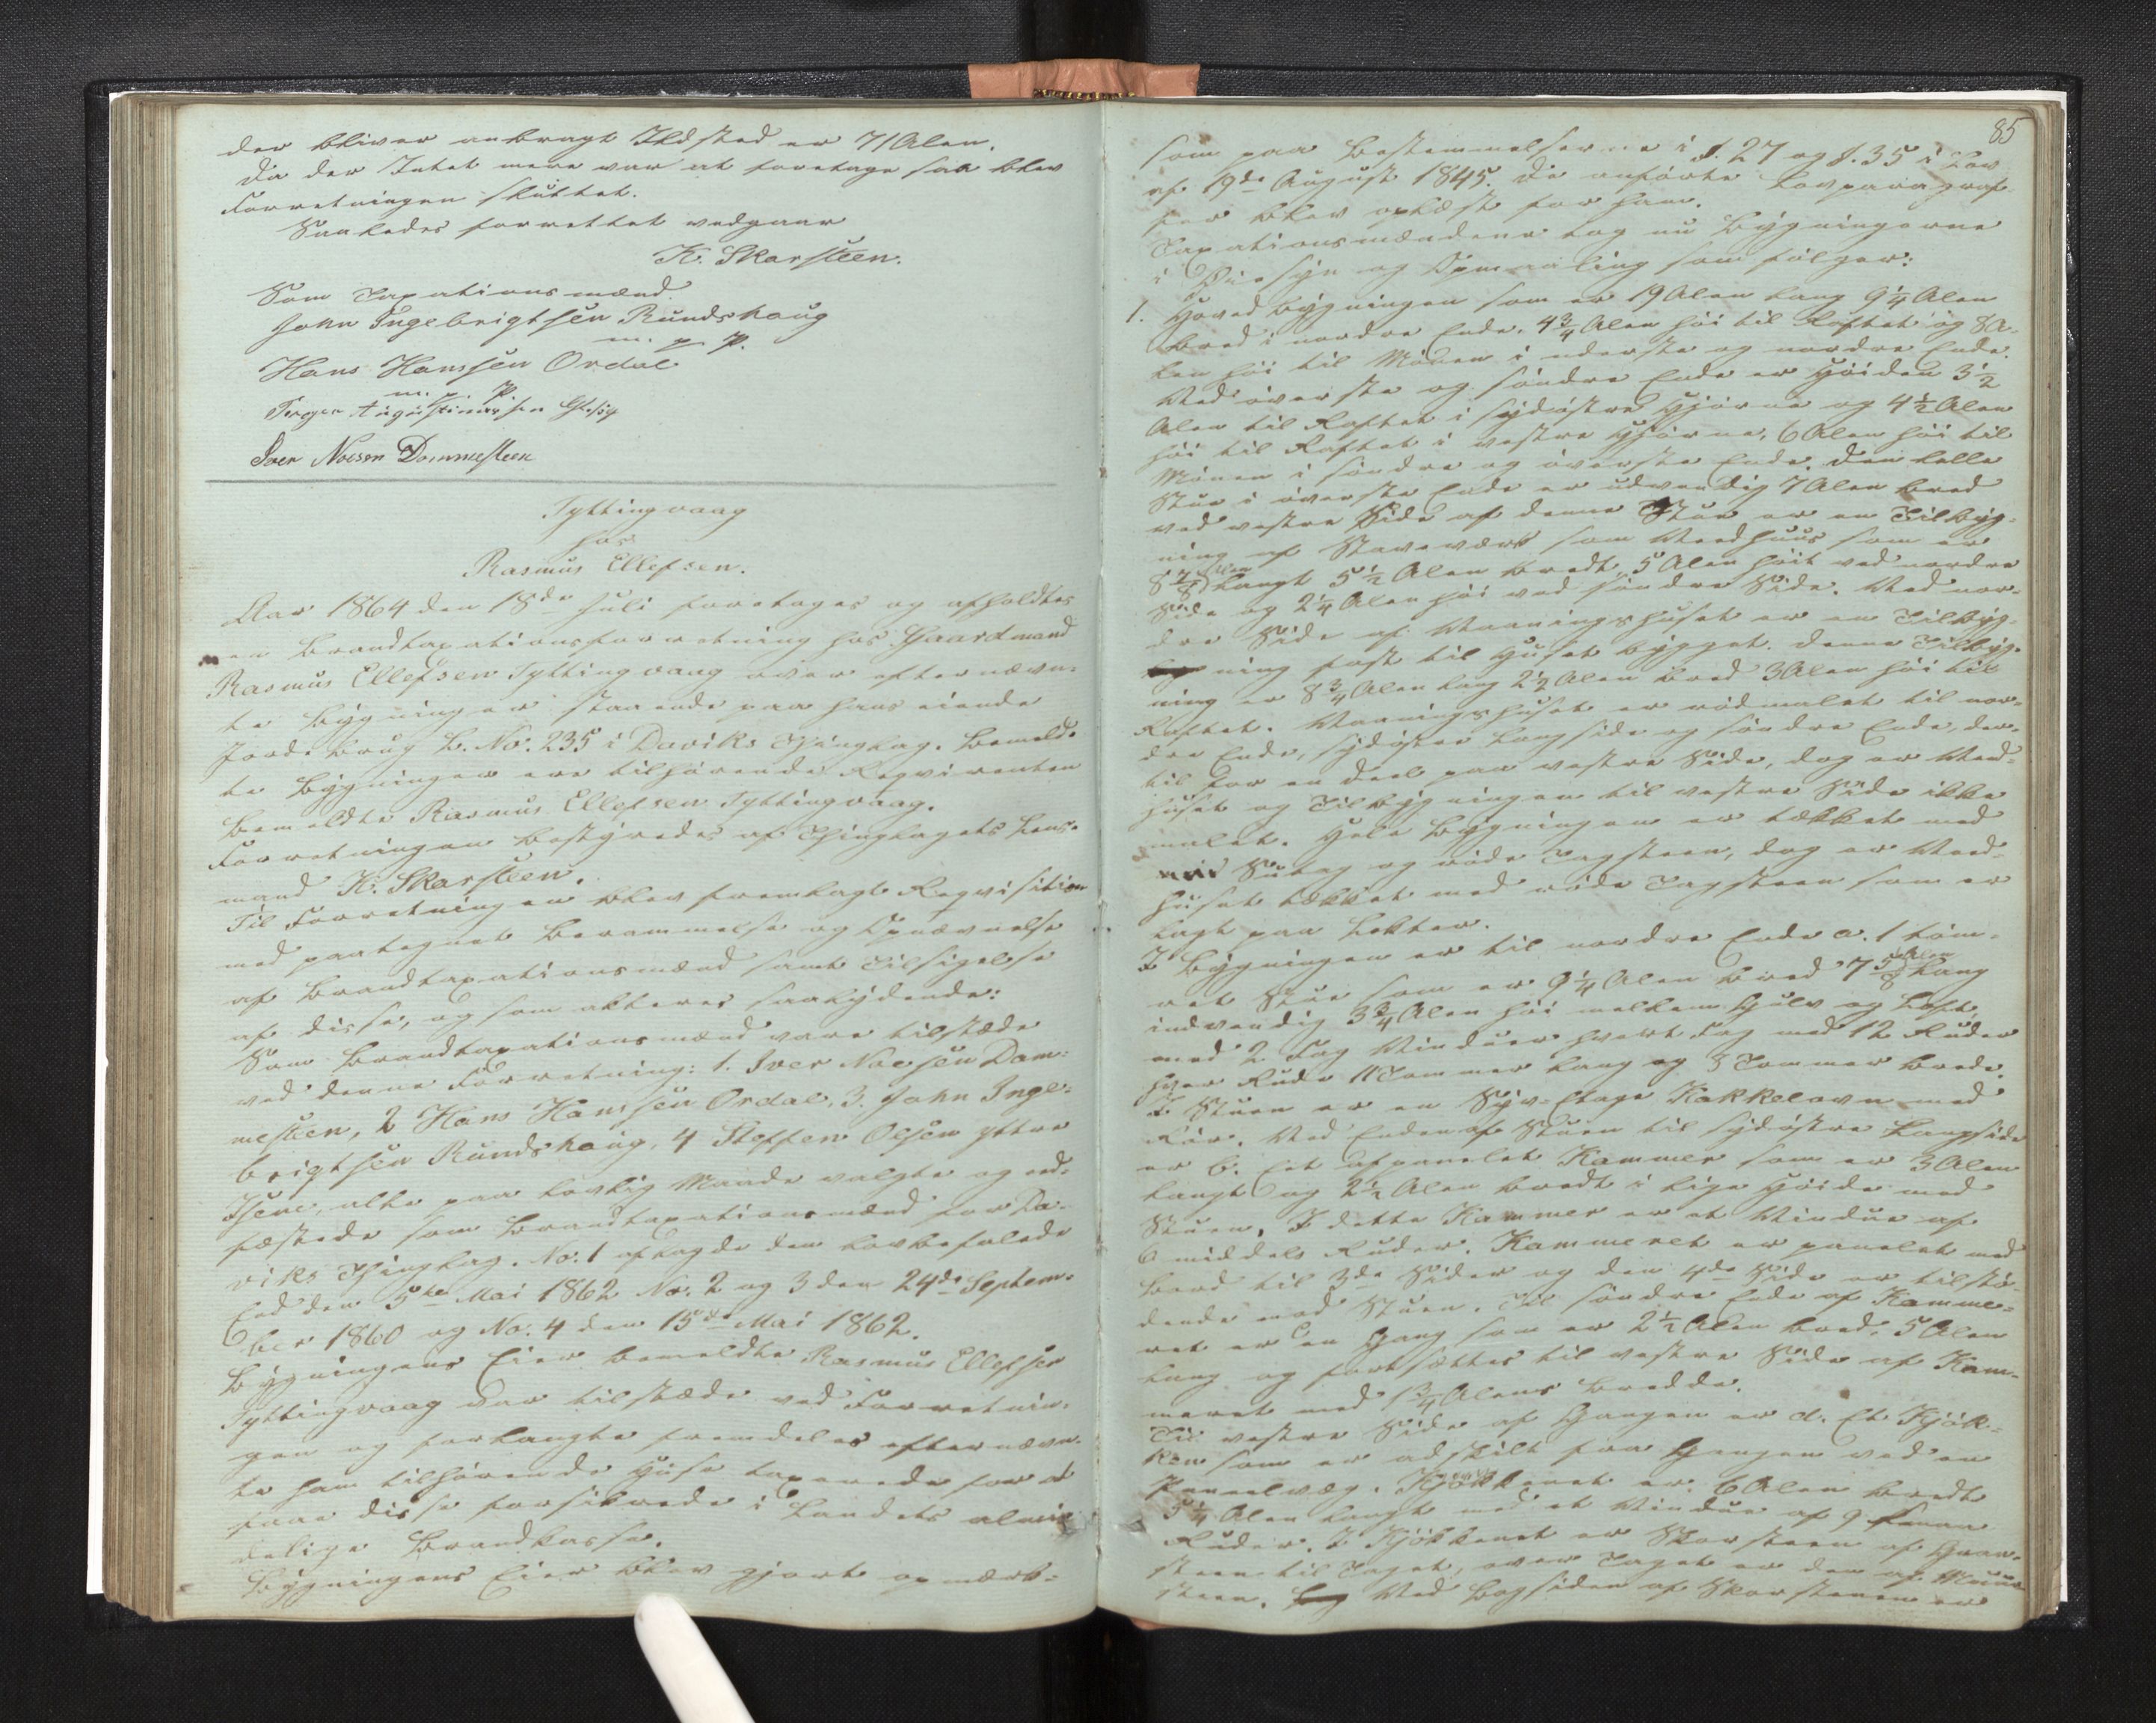 der bliver anbragt Ildsted er 71 Alen.
Da der Intet mere var at foretage saa blev
Forretningen sluttet.
Saaledes forrettet vedgaar
K. Skarsteen.
Som Taxationsmænd
John Ingebrigtsen Rundshoug
m. p. P.
Hans Hanssen Ordal
m. p. P.
Augustinussen
Iver Noesen Dommesteen
Tyttingvaag
hos
Rasmus Ellefsen.
Aar 1864 den 18de Juli foretages og afholdtes
en Brandtaxationsforretning hos Gaardmand
Rasmus Ellefsen Tyttingvaag over efternævn-
te Bygninger staaende paa hans eiende
Jordebrug L. No. 235 i Daviks Thinglag. Bemeld-
te Bygninger ere tilhørende Reqvirenten
bemeldte Rasmus Ellefsen Tyttingvaag.
Forretningen bestyredes af Thinglagets Lens-
mand K. Skarsteen.
Til Forretningen blev fremlagt Reqvisition
med paategnet Berammelse og Opnævnelse
af Brandtaxationsmænd samt Tilsigelse
af disse, og som akteres saalydende:
Som Brandtaxationsmænd vare tilstæde
ved denne Forretning: 1. Iver Noesen Dom-
mesteen, 2 Hans Hanssen Ordal, 3. John Inge-
brigtsen Rundshoug, 4 Steffen Olsen yttre
Isene, alle paa lovlig Maade valgte og ed-
fæstede som Brandtaxationsmænd for Da-
viks Thinglag. No. 1 aflagde den lovbefalede
Eed den 5te Mai 1862 No. 2 og 3 den 24de Septem-
ber 1860 og No. 4 den 15de Mai 1862.
Bygningens Eier bemeldte Rasmus Ellefsen
Tyttingvaag var tilstæde ved Forretnin-
gen og forlangte fremdeles efternævn-
te ham tilhørende Huse taxerede for at
faae disse forsikrede i Landets almin-
delige Brandkasse.
Bygningens Eier blev gjort opmærk-
85
som paa Bestemmelserne i §. 27 og §. 35 i Lov
af 19de August 1845. De anførte Lovparagraf-
fer blev oplæst for ham.
Taxationsmændene tog nu Bygningerne
i Øiesyn og Opmaaling som følger:
1. Hovedbygningen som er 19 Alen lang 9 1/4 Alen
bred i nordre Ende. 4 3/4 Alen høi til Raftet og 8 A-
len høi til Mønen i nederste og nordre Ende.
Ved øverste og søndre Ende er Høiden 3 1/2
Alen til Raftet i sydøstre Hjørne og 4 1/2 Alen
høi til Raftet i vestre Hjørne, 6 Alen høi til
Mønen i søndre og øverste Ende. Den lille
Stue i øverste Ende er udvendig 7 Alen bred
ved vestre Side af denne Stue er en Tilbyg-
ning af Stavværk som Vedhuus som er
8 7/8 Alen langt 5 1/2 Alen bredt, 5 Alen høit ved nordre
Side og 2 1/4 Alen høi ved søndre Side. Ved nor-
dre Side af Vaaningshuset er en Tilbyg-
ning fast til Huset bygget. Denne Tilbyg-
ning er 8 3/4 Alen lang 2 1/2 Alen bred 3 Alen høi til
Raftet. Vaaningshuset er rødmalet til nor-
dre Ende, sydøstre Langside og søndre Ende, der-
til for en deel paa vestre Side, dog er Ved-
huset og Tilbygningen til vestre Side ikke
malet. Hele Bygningen er tækket med
Sutag og røde Tagsteen, dog er Ved-
huset tækket med røde Tagsteen som er
lagt paa Lekter.
I Bygningen er til nordre Ende a. 1 tøm-
ret Stue som er 9 1/4 Alen bred 7 5/8 Alen lang
indvendig 3 3/4 Alen høi mellem Gulv og Loft,
med 2 Fag Vinduer hvert Fag med 12 Ruder
hver Rude 11 Tommer lang og 8 Tommer brede.
I Stuen er en Syv-Etage Kakkelovn med
Rør. Ved Enden af Stuen til sydøstre Langside
er b. Et afpanelet Kammer som er 3 Alen
langt og 2 1/2 Alen bredt i lige Høide med
Stuen. I dette Kammer er et Vindue af
6 middels Ruder. Kammeret er panelet med
Bord til 3de Sider og den 4de Side er tilstø-
dende mod Stuen. Til søndre Ende af Kamme-
ret er c en Gang som er 2 1/2 Alen bred, 5 Alen
lang og fortsættes til vestre Side af Kam-
meret med 1 3/4 Alens Bredde.
Til vestre Side af Gangen er d. Et Kjøk-
ken som er adskilt fra Gangen ved en
Panelvæg. Kjøkkenet er 6 Alen bredt
5 1/4 Alen langt med et Vindue af 9 smaa
Ruder. I Kjøkkenet er Skorsteen af Graa-
steen til Taget, over Taget er den af Muur-
steen. Ved Bagsiden af Skorstenen er